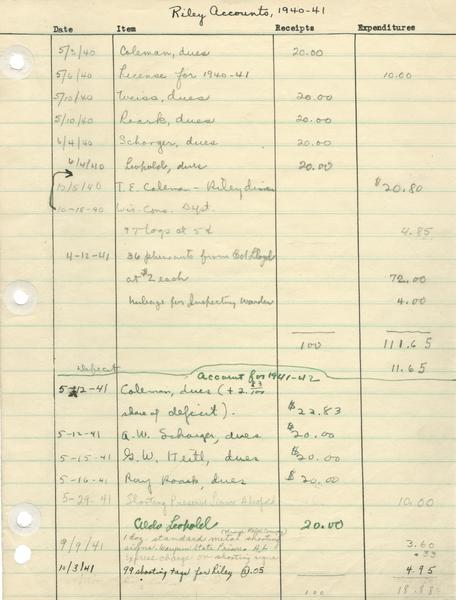 Riley Accounts, 1940-41
Date Item Receipts Expenditures
5/3/40 Coleman, dues 20.00
5/6/40 License for 1940-41 10.00
5/10/40 Weiss, dues 20.00
5/10/40 Roark, dues 20.00
6/4/40 Schorger, dues 20.00
6/4/40 Leopold, dues 20.00
12/5/40 T.E. Coleman - Riley dinner $20.80
10-18-40 Wis. Cons. Dept.
97 tags at 5¢ 4.85
4-12-41 36 pheasants from Col Lloyd
at $2 each 72.00
Mileage for Inspecting Warden 4.00
100 111.65
Deficit 11.65
Account for 1941-42
5-12-41 Coleman, dues (+ 2.83
share of deficit). $22.83
5-12-41 A.W. Schorger, dues $20.00
5-15-41 G.W. Heitl, dues $20.00
5-16-41 Ray Roark, dues $20.00
5-29-41 Shooting Preserve License 10.00
Aldo Leopold 20.00
1 doz. standard metal shooting
9/9/41 signs. Waupun State Prison 3.60
express charge on shooting signs .33
10/3/41 99 shooting tags for Riley @ .05 4.95
100 18.88